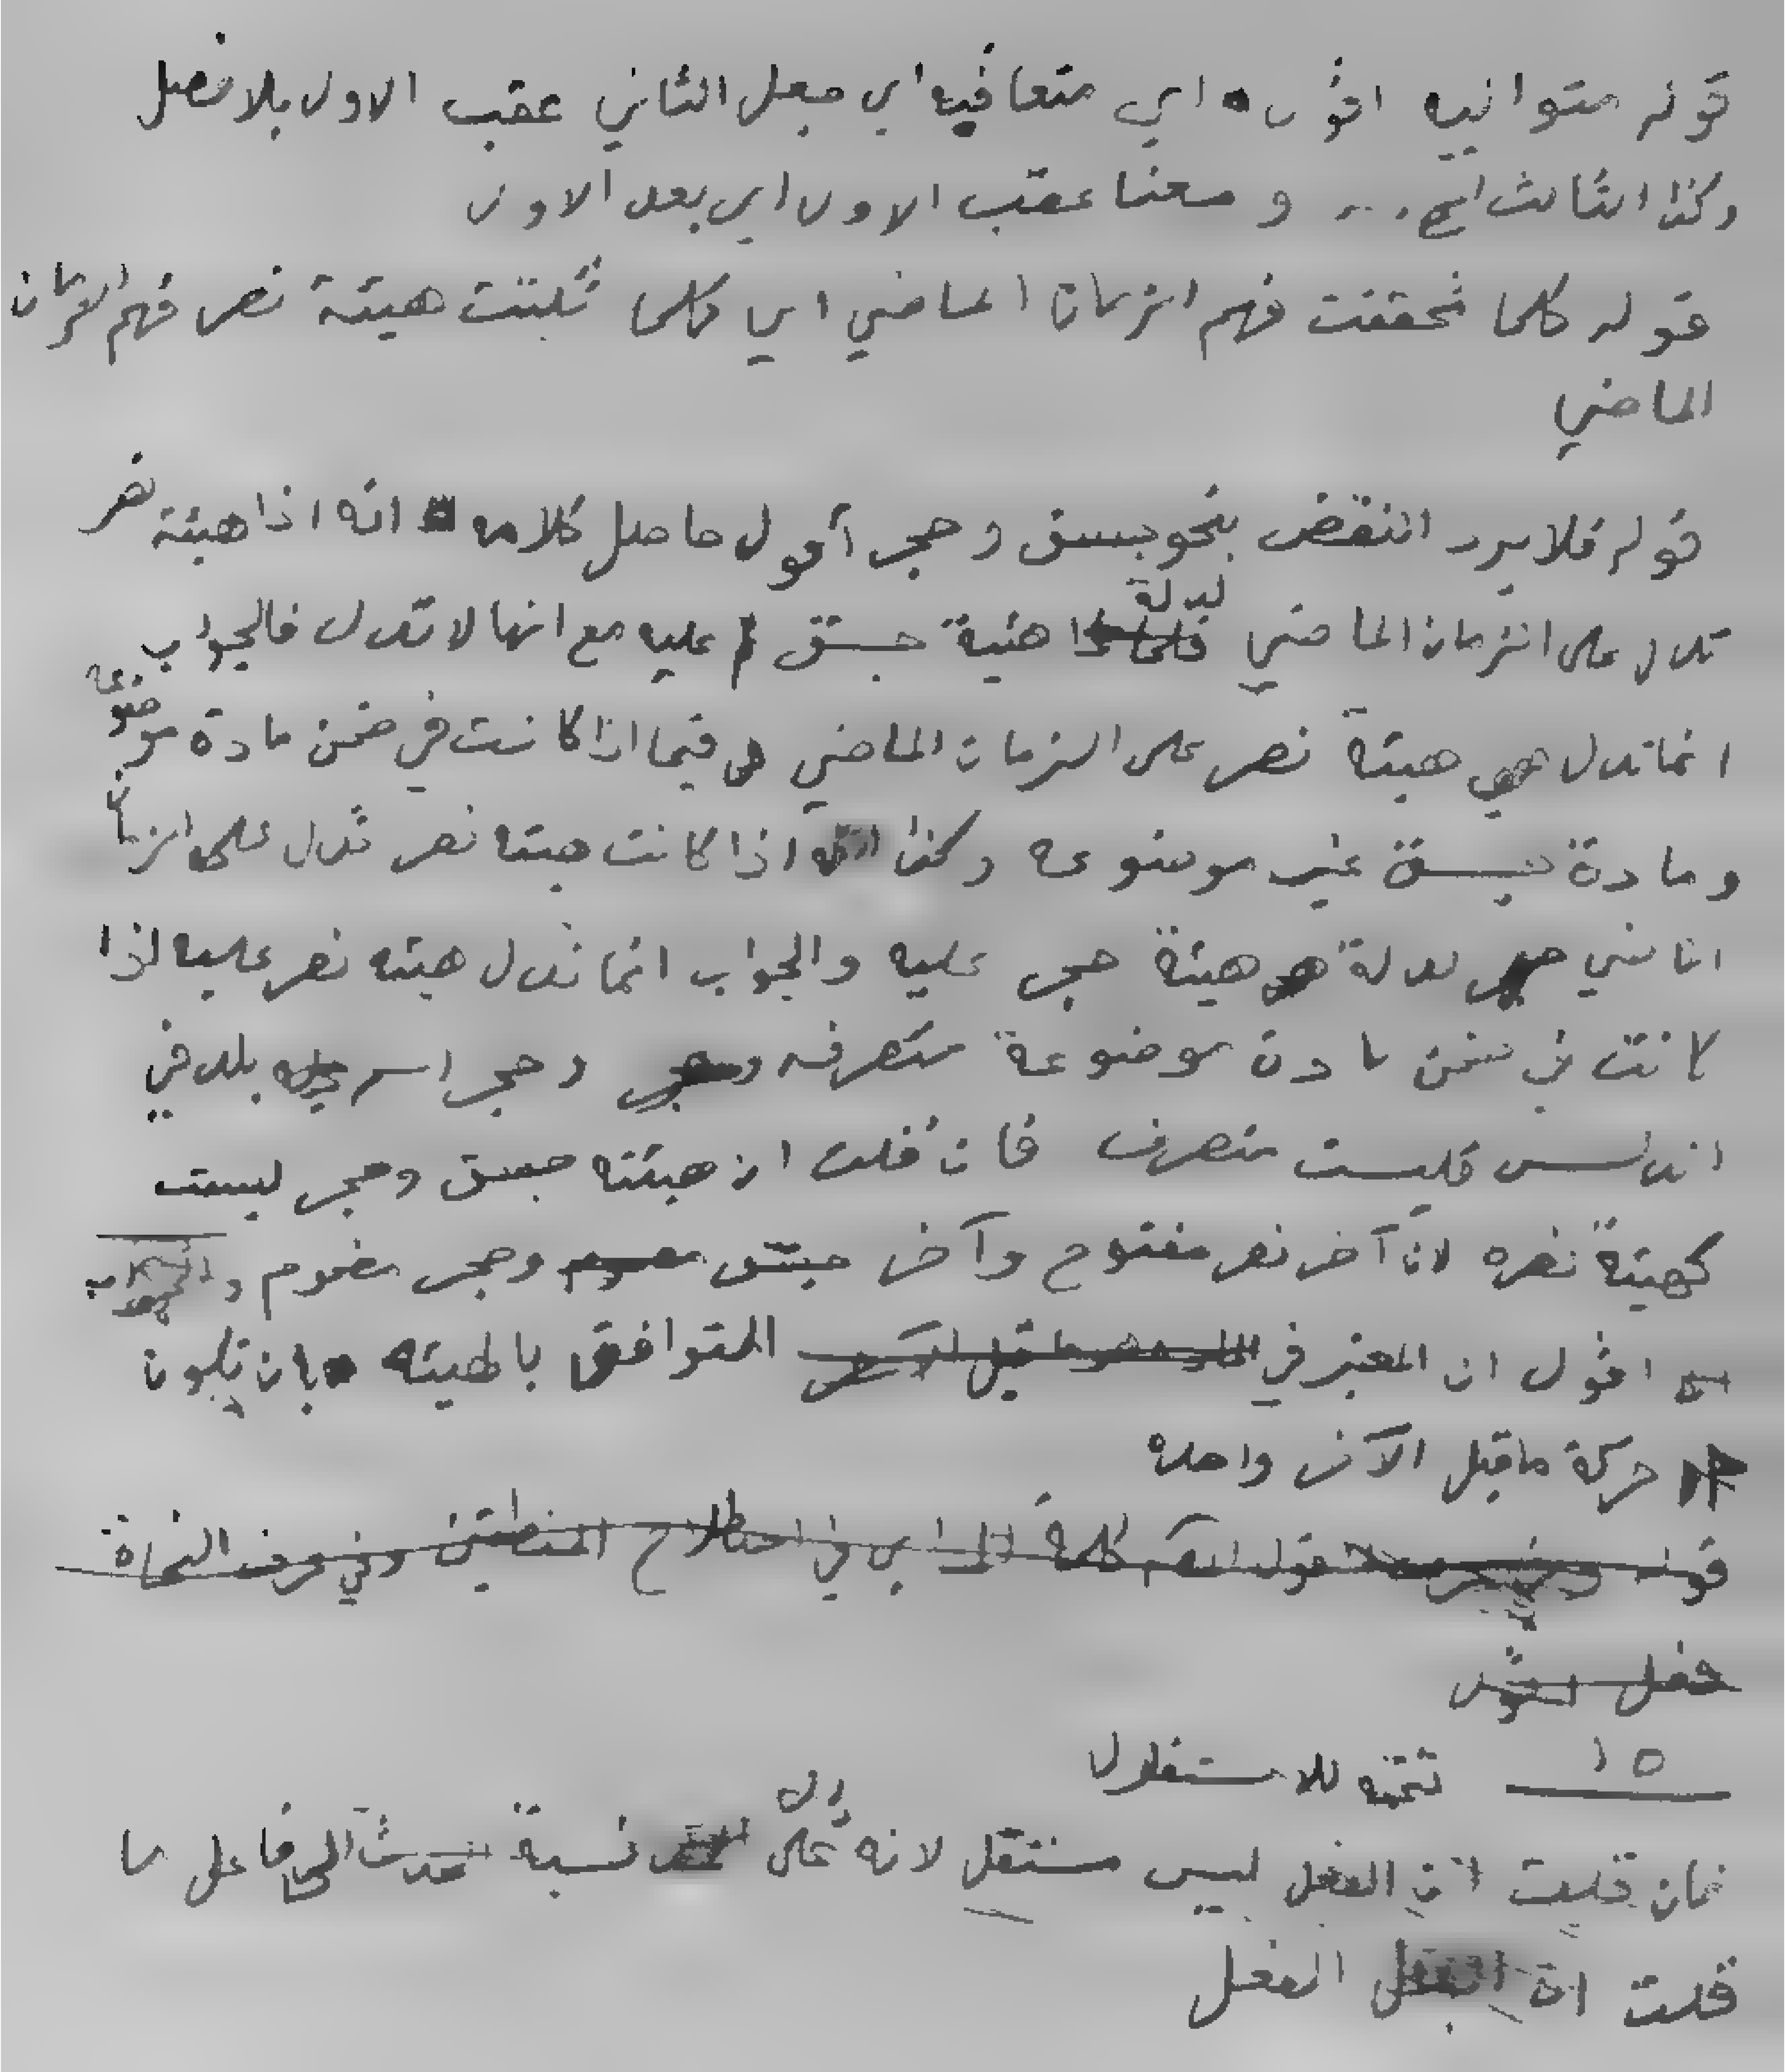 قوله متوانيه اقول اي متعاقبه اي جعل الثاني عقب الاول بلا فصل
وكذا الثالث الخ... و معنا عقب الاول اي بعد الاول
قوله كلما تحققت فهم الزمان الماضي اي كلما ثبتت هيئة نصر فهم الزمان
الماضي
قوله فلا يرد النقض بنحو جسق وحجر أقول حاصل كلامه انه اذا هيئة نصر
تدل على الزمان الماضي لدلة هئية جسق عليه مع انها لا تدل فالجواب
انما تدل هي هيئة نصر على الزمان الماضي فيما اذا كانت في ضمن مادة موضوعة
ومادة جسق غير موضوعه وكذا اذا كانت هيئه نصر تدل على الزمان
الماضي لدلة هيئة حجر عليه والجواب انما تدل هيئه نصر عليه اذا
كانت في ضمن مادة موضوعة متصرفه وحجر اسم بلد في
اندلس فليست متصرف فان قلت ان هيئته جسق وحجر ليست
كهيئة نصره لان آخر نصر مفتوح وآخر جسق وحجر مضموم والجواب
اقول ان المعتبر في المتوافق بالهيئه بان تكون
حركة ماقبل الآخر واحده
قوله كلمة اي في اصطلاح المنطقين وفي عرف النحاة
فعل اقول
١٥ تتمه للاستقلال
فان قلت ان الفعل ليس مستقل لانه دال على نسبة حدث الى فاعل ما
قلت ان الفعل الفعل